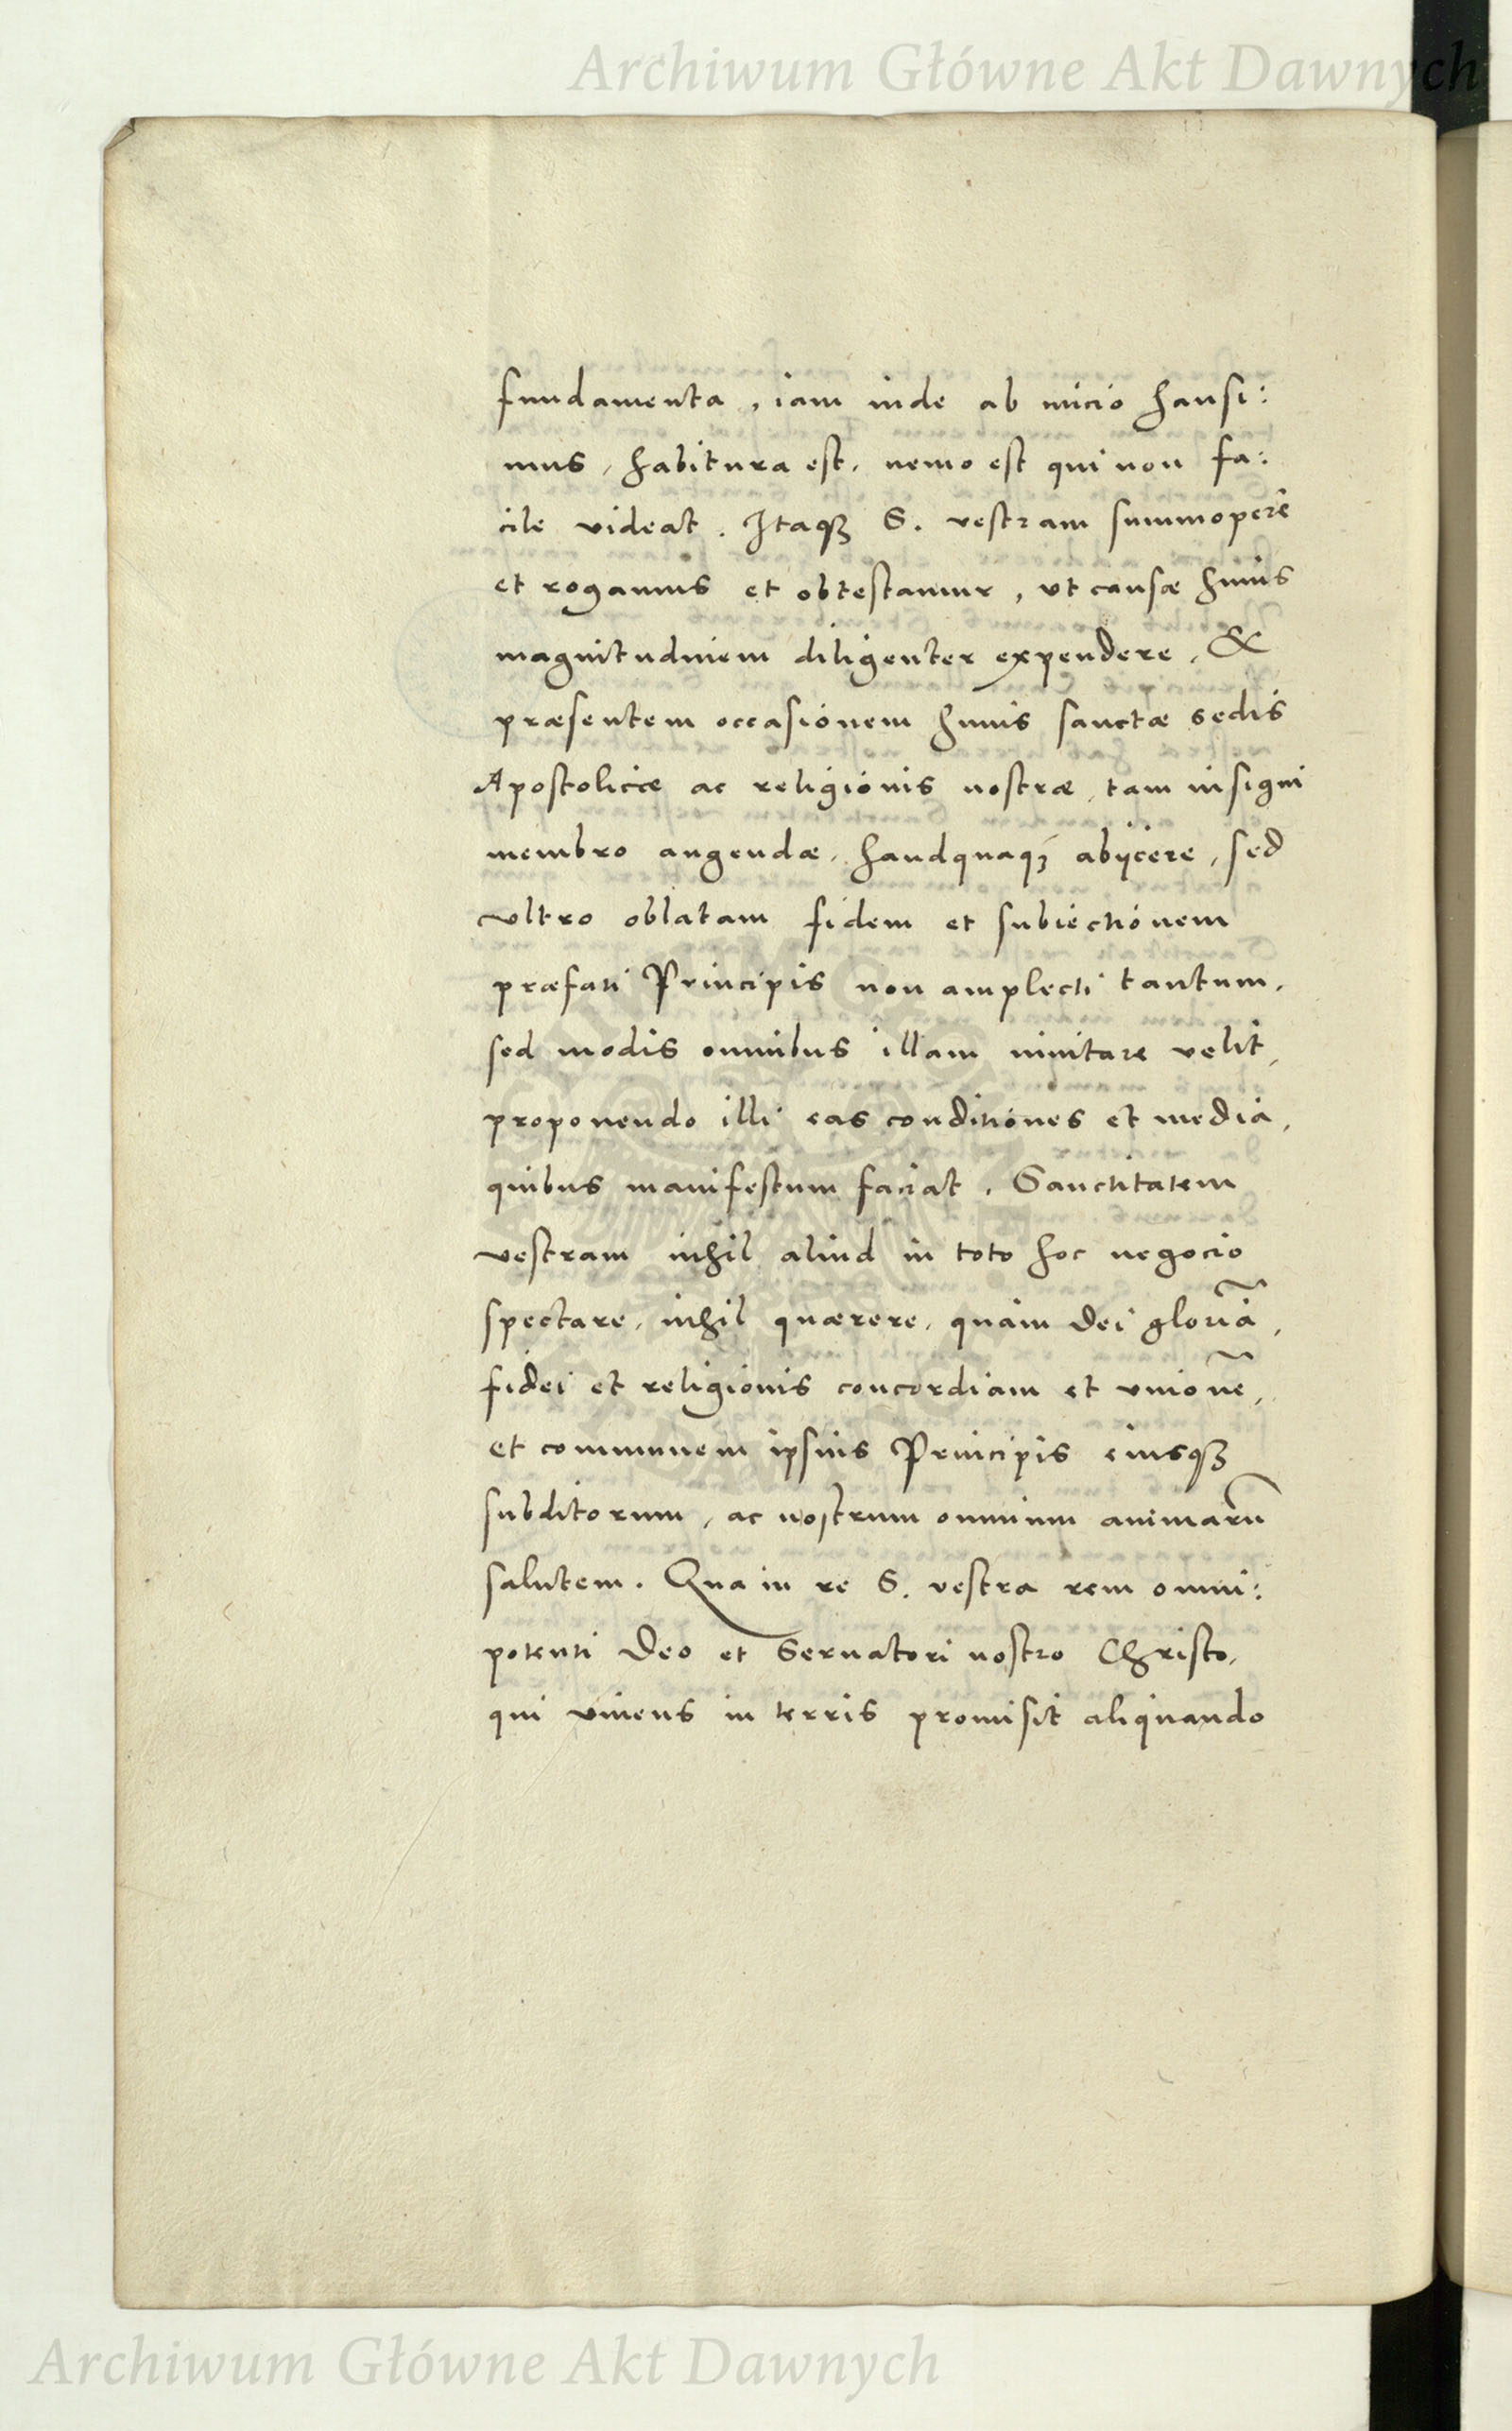 Archiwum Główne Akt Dawnych
fundamenta, iam inde ab inicio hausi:
mus, habitura est, nemo est qui non fa:
cile videat. Itaq; S. vestram summopere
et rogamus et obtestamur, ut causæ huius
magnitudinem diligenter expendere, &
præsentem occasionem huius sanctæ sedis
Apostolicæ ac religionis nostræ, tam insigni
membro augendæ, haudquaq; abijcere, sed
ultro oblatam fidem et subiectionem
præfati Principis non amplecti tantum,
sed modis omnibus illam invitare velit,
proponendo illi eas conditiones et media,
quibus manifestum faciat, Sanctitatem
vestram nihil aliud in toto hoc negocio
spectare, nihil quærere, quàm Dei gloriã,
fidei et religionis concordiam et unionẽ,
et communem ipsius Principis eiusq;
subditorum, ac nostrum omnium animarũ
salutem. Qua in re S. vestra rem omni:
potenti Deo et Servatori nostro Christo,
qui vivens in terris promisit aliquando
Archiwum Główne Akt Dawnych